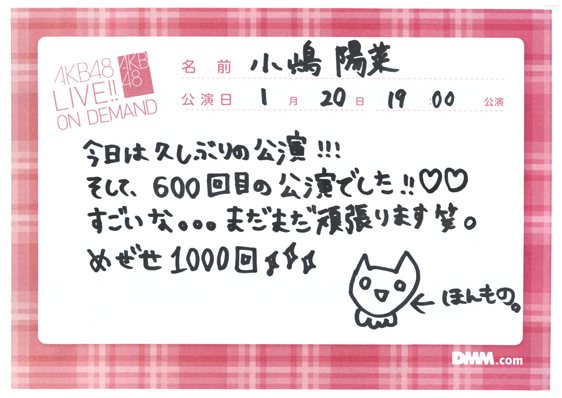 AKB48
LIVE!!
ON DEMAND
AKB
48
名 前 小嶋 陽菜
公演日 1 月 20 日 19 : 00 公演
今日は久しぶりの公演!!!
そして、600回目の公演でした!!♡♡
すごいな。。。まだまだ頑張ります笑。
めざせ1000回
←ほんもの。
DMM.com